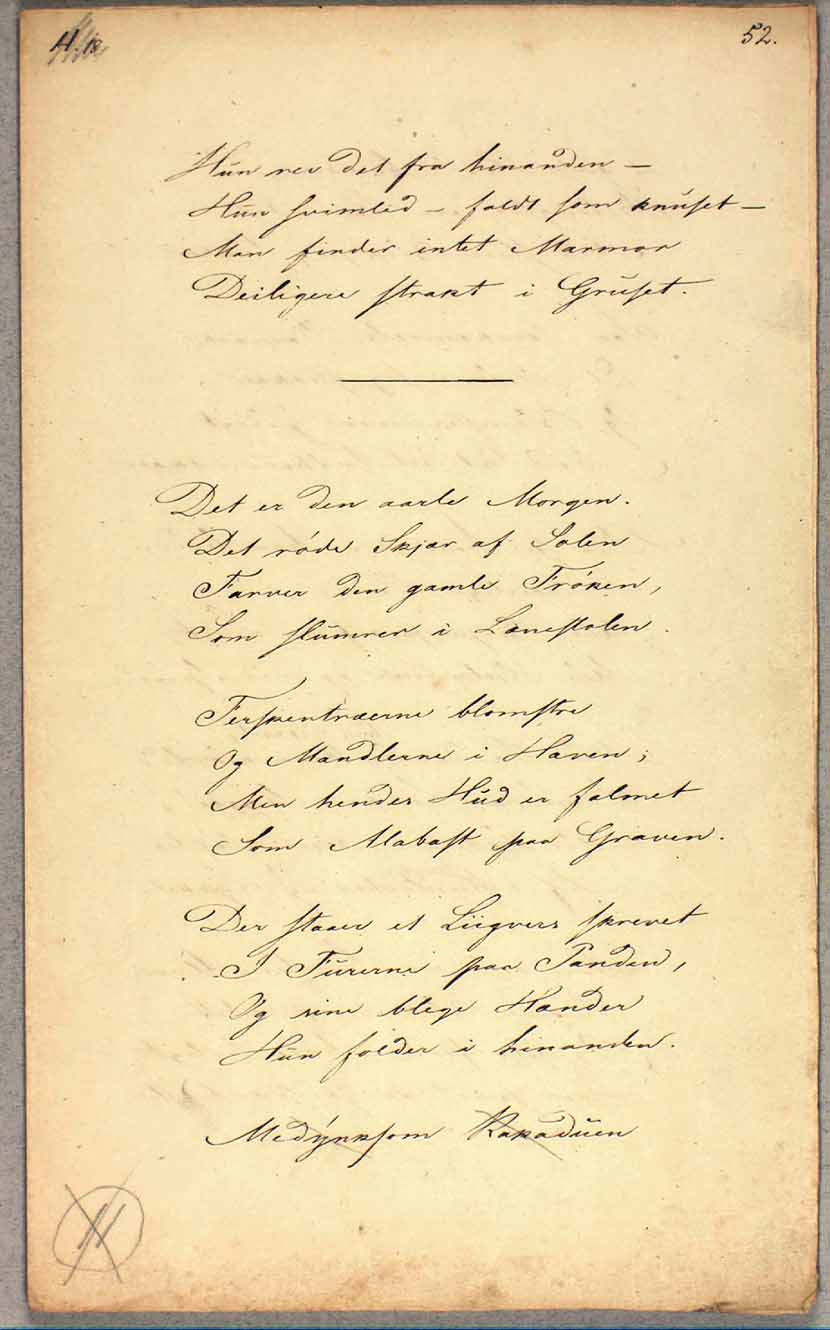 52.
Hun rev det fra hinanden —
Hun svimled — faldt som knuset —
Man finder intet Marmor
Deiligere strakt i Gruset.
Det er den aarle Morgen.
Det røde Skjær af Solen
Farver den gamle Frøken,
Som slumrer i Lænestolen.
Ferskentræerne blomstre
Og Mandlerne i Haven;
Men hendes Hud er falmet
Som Alabast paa Graven.
Der staaer et Liigvers skrevet
I Furerne paa Panden,
Og sine blege Hænder
Hun folder i hinanden.
Medynksom Kakaduen